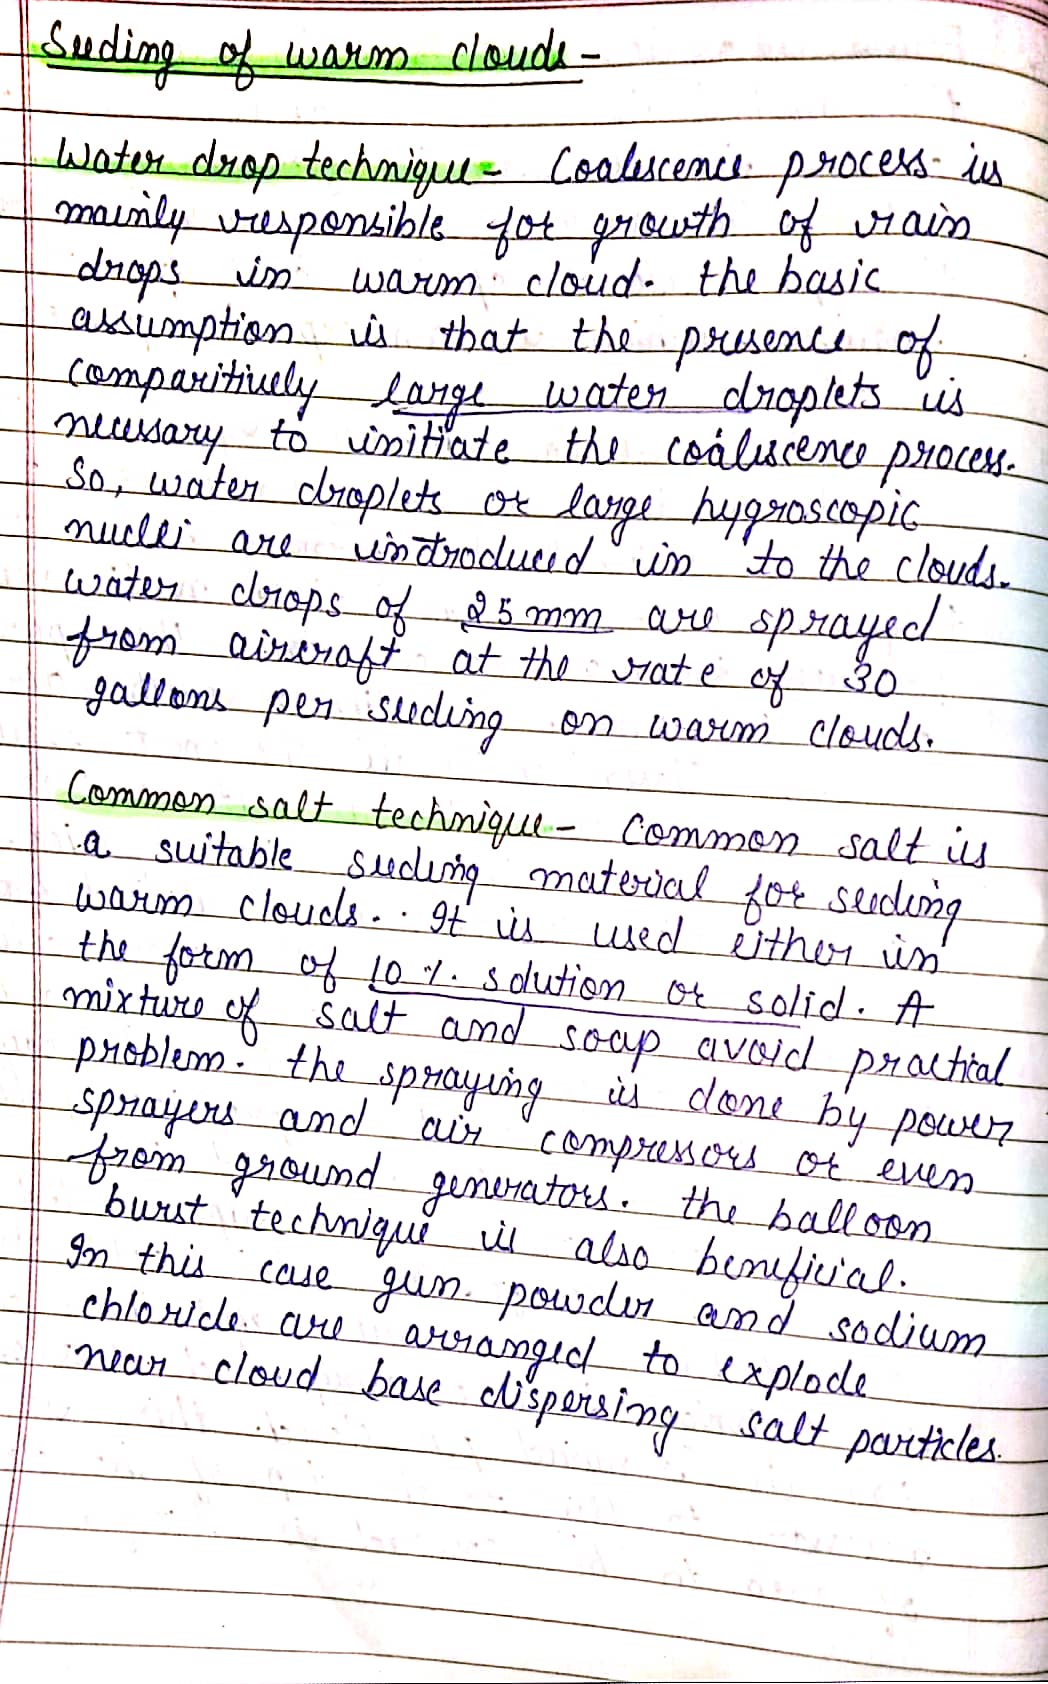 Seeding of warm clouds -
Water drop technique - Coalescence process is
mainly responsible for growth of rain
drops in warm cloud. the basic
assumption is that the presence of
comparitively large water droplets is
necessary to initiate the coalescence process.
So, water droplets or large hygroscopic
nuclei are introduced in to the clouds.
water drops of 25 mm are sprayed
from aircraft at the rate of 30
gallons per seeding on warm clouds.
Common salt technique - Common salt is
a suitable seeding material for seeding
warm clouds. It is used either in
the form of 10 % solution or solid. A
mixture of salt and soap avoid practical
problem. the spraying is done by power
sprayers and air compressors or even
from ground generators. the balloon
burst technique is also beneficial.
In this case gun powder and sodium
chloride are arranged to explode
near cloud base dispersing salt particles.